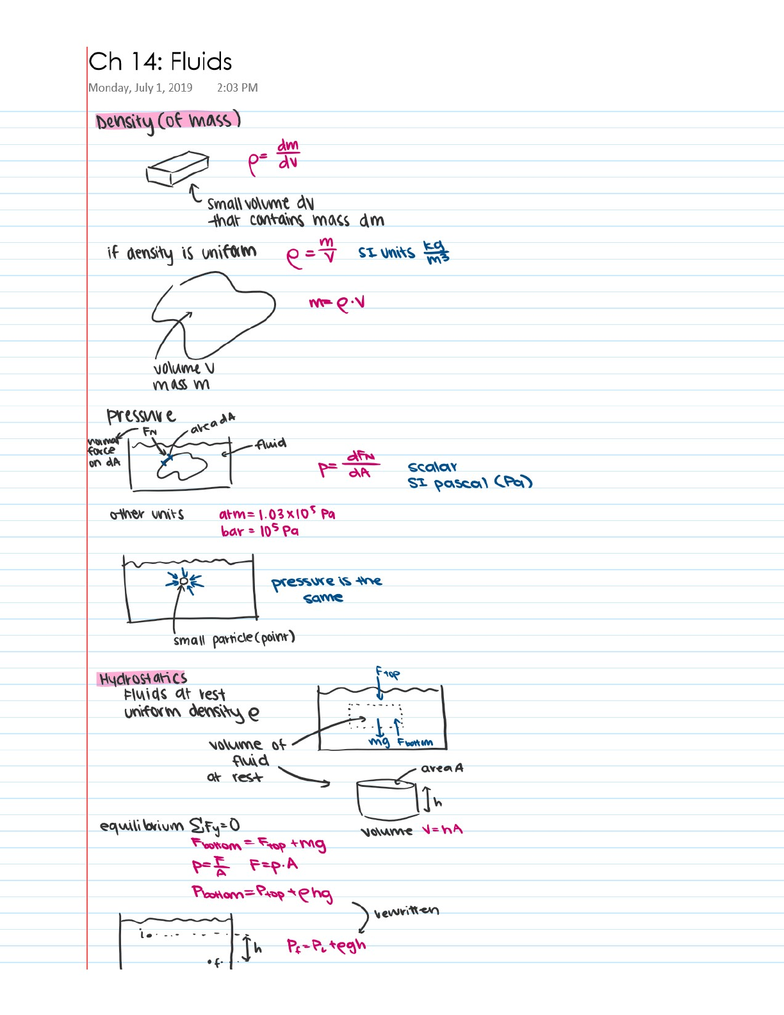 Ch 14: Fluids
Monday, July 1, 2019 2:03 PM
Density (of mass)
ρ = dm/dV
small volume dV
that contains mass dm
if density is uniform ρ = m/V SI units kg/m³
m = ρ·V
volume V
mass m
pressure
FN area dA
normal force on dA
fluid
P = dFN/dA scalar
SI pascal (Pa)
other units atm = 1.03 x 10⁵ Pa
bar = 10⁵ Pa
pressure is the
same
small particle (point)
Hydrostatics
Fluids at rest
uniform density ρ
Ftop
mg Fbottom
volume of
fluid
at rest
area A
h
volume V = hA
equilibrium ΣFy = 0
Fbottom = Ftop + mg
P = F/A F = P·A
Pbottom = Ptop + ρhg
rewritten
i
h
f
Pf = Pi + ρgh